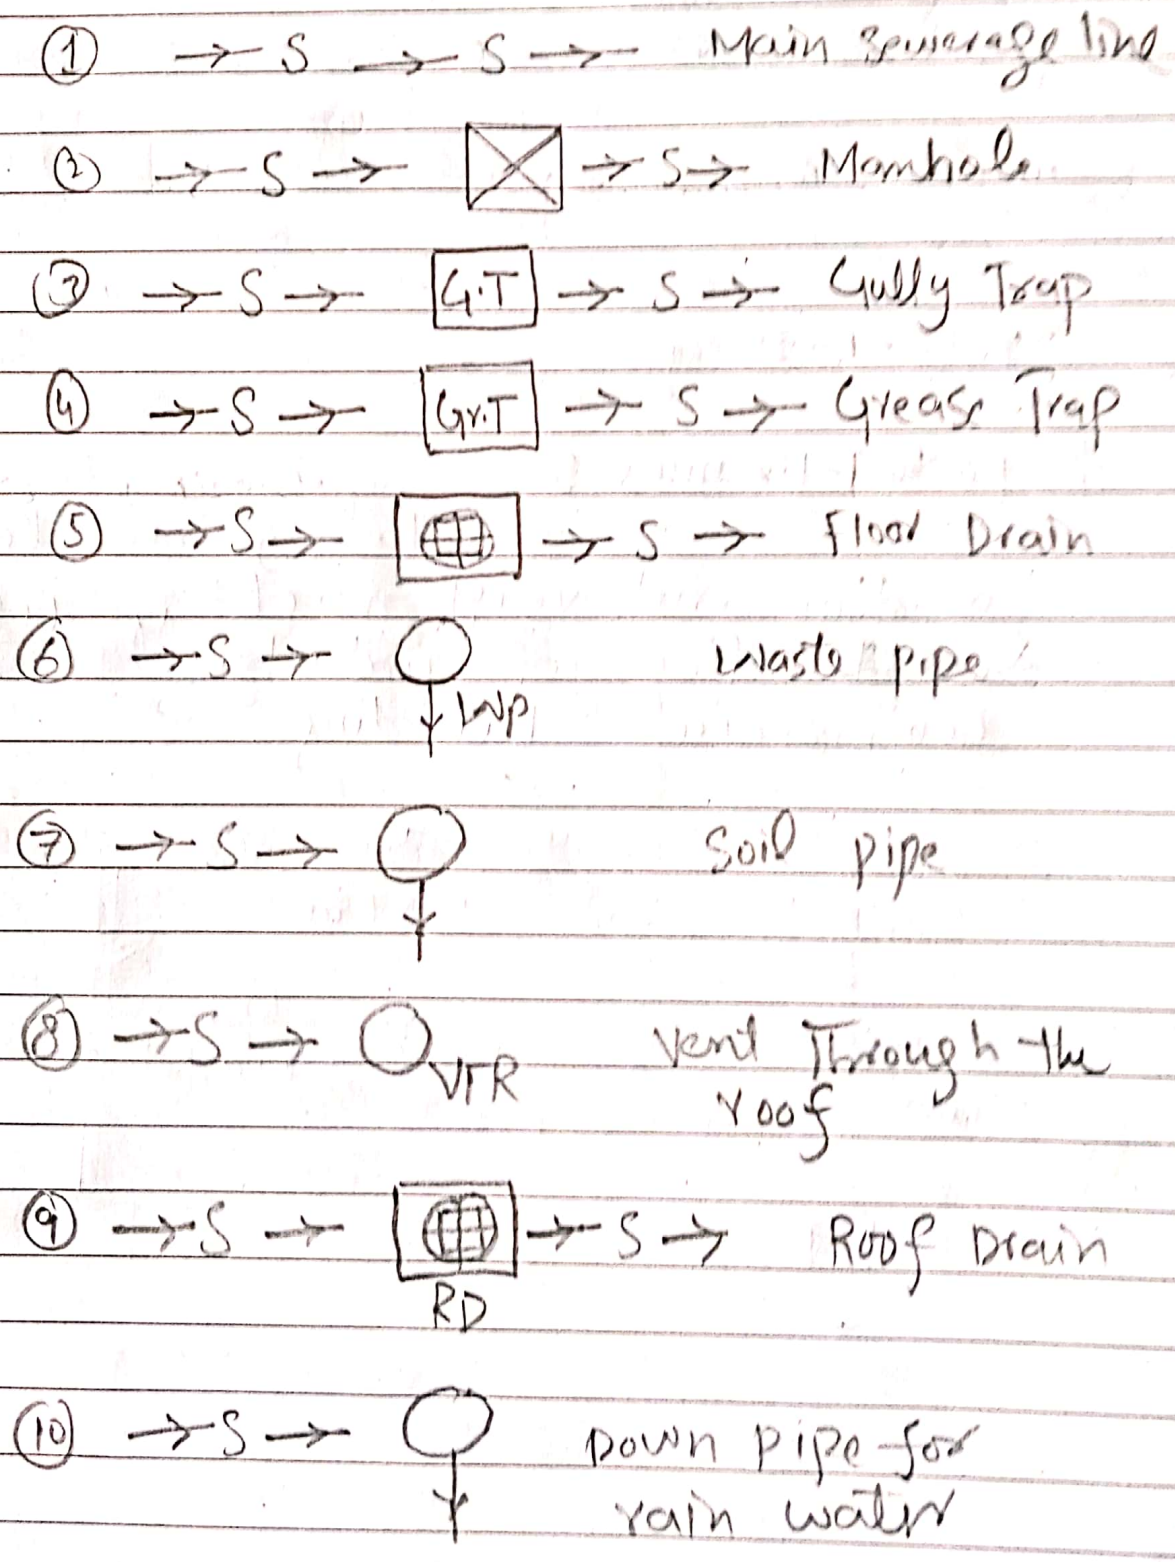 ① → S → S → Main Sewerage line
② → S → → S → Manhole
③ → S → G.T → S → Gully Trap
④ → S → Gr.T → S → Grease Trap
⑤ → S → → S → Floor Drain
⑥ → S → Waste pipe
WP
⑦ → S → Soil pipe
⑧ → S → VTR Vent Through the
roof
⑨ → S → → S → Roof Drain
RD
⑩ → S → Down pipe for
rain water